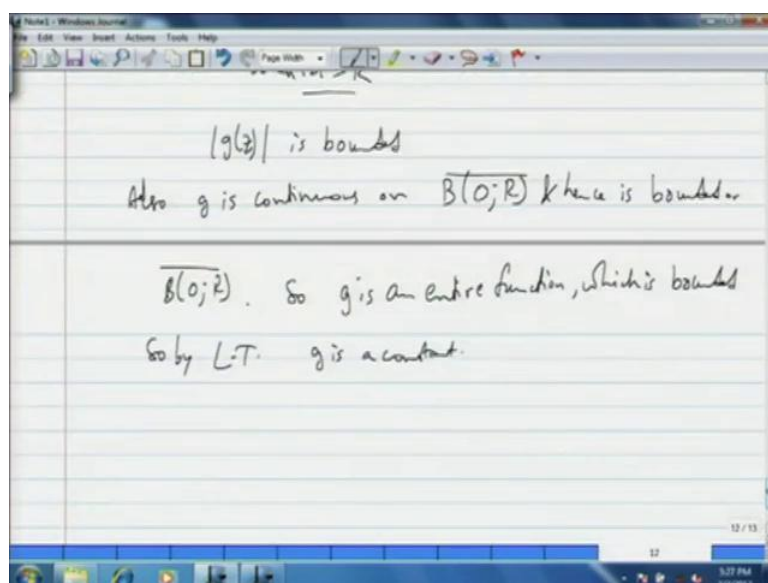 Note1 - Windows Journal
File Edit View Insert Actions Tools Help
Page Width
|g(z)| is bounded
Also g is continuous on B(0;R) & hence is bounded on
B(0;R). So g is an entire function, which is bounded
So by L.T. g is a constant.
12 / 13
12
5:27 PM